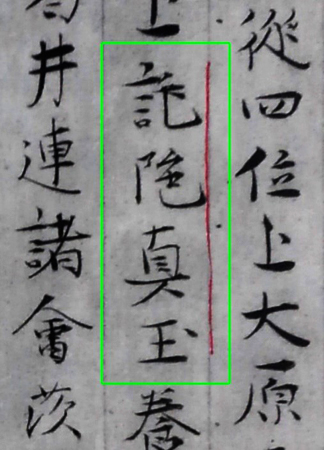 從四位上大原
上託陁真玉養
井連諸會茨